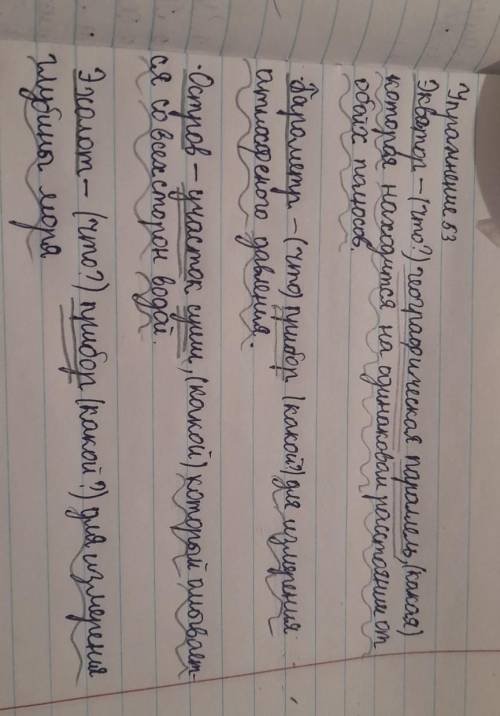 Упражнение 53
Экватор – (что?) географическая паралель, (какая)
которая находится на одинаковам расстоянии от
обоих палюсов.
Бараметр – (что) прибор (какой?) для измерения
атмосфеного давления.
Остров – участок суши, (какой) который омывает-
ся со всех сторон водой.
Эхолот – (что?) прибор (какой?) для измерения
глубины моря